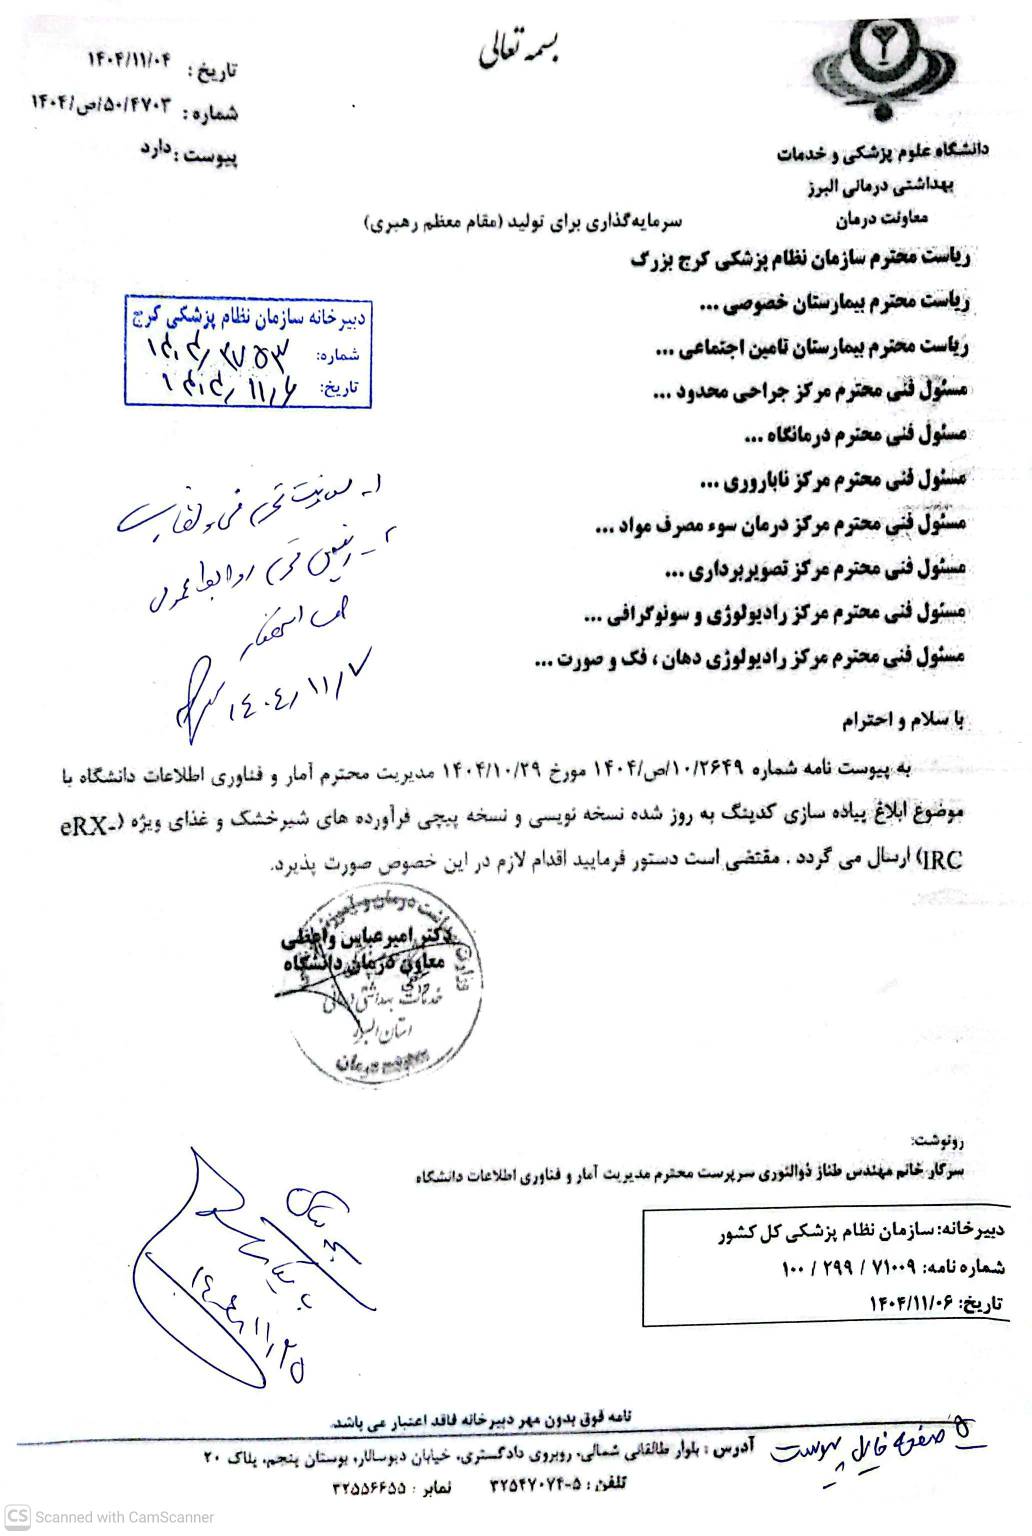 بسمه تعالی
تاریخ : ۱۴۰۴/۱۱/۰۴
شماره : ۱۴۰۴/ص/۵۰/۴۷۰۳
پیوست : دارد
دانشگاه علوم پزشکی و خدمات
بهداشتی درمانی البرز
معاونت درمان
سرمایه‌گذاری برای تولید (مقام معظم رهبری)
ریاست محترم سازمان نظام پزشکی کرج بزرگ
ریاست محترم بیمارستان خصوصی ...
ریاست محترم بیمارستان تامین اجتماعی ...
مسئول فنی محترم مرکز جراحی محدود ...
مسئول فنی محترم درمانگاه ...
مسئول فنی محترم مرکز ناباروری ...
مسئول فنی محترم مرکز درمان سوء مصرف مواد ...
مسئول فنی محترم مرکز تصویربرداری ...
مسئول فنی محترم مرکز رادیولوژی و سونوگرافی ...
مسئول فنی محترم مرکز رادیولوژی دهان ، فک و صورت ...
دبیرخانه سازمان نظام پزشکی کرج
شماره: ۱۴۰۴/۳۷۵۳
تاریخ: ۱۴۰۴/۱۱/۶
۱- معاونت محترم فنی و نظارت
۲- رئیس محترم روابط عمومی
۱۴۰۴/۱۱/۷
با سلام و احترام
به پیوست نامه شماره ۱۴۰۴/ص/۱۰/۲۶۴۹ مورخ ۱۴۰۴/۱۰/۲۹ مدیریت محترم آمار و فناوری اطلاعات دانشگاه با
موضوع ابلاغ پیاده سازی کدینگ به روز شده نسخه نویسی و نسخه پیچی فرآورده های شیرخشک و غذای ویژه (eRX-
IRC) ارسال می گردد . مقتضی است دستور فرمایید اقدام لازم در این خصوص صورت پذیرد.
دکتر امیرعباس واعظی
معاون درمان دانشگاه
خدمات بهداشتی درمانی
استان البرز
درمان
رونوشت:
سرکار خانم مهندس طناز ذوالنوری سرپرست محترم مدیریت آمار و فناوری اطلاعات دانشگاه
دبیرخانه: سازمان نظام پزشکی کل کشور
شماره نامه: ۷۱۰۰۹ / ۲۹۹ / ۱۰۰
تاریخ: ۱۴۰۴/۱۱/۰۶
نامه فوق بدون مهر دبیرخانه فاقد اعتبار می باشد.
۵ صفحه فایل پیوست
آدرس : بلوار طالقانی شمالی، روبروی دادگستری، خیابان دبوسالار، بوستان پنجم، پلاک ۲۰
تلفن : ۵-۳۲۵۴۷۰۷۴ نمابر : ۳۲۵۵۶۶۵۵
CS Scanned with CamScanner